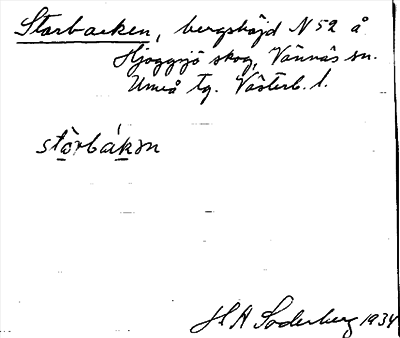 Storbacken, bergshöjd N 52 å
Hjoggsjö skog, Vännäs sn.
Umeå tg. Västerb. l.
stòrbákən
H A Söderberg 1934